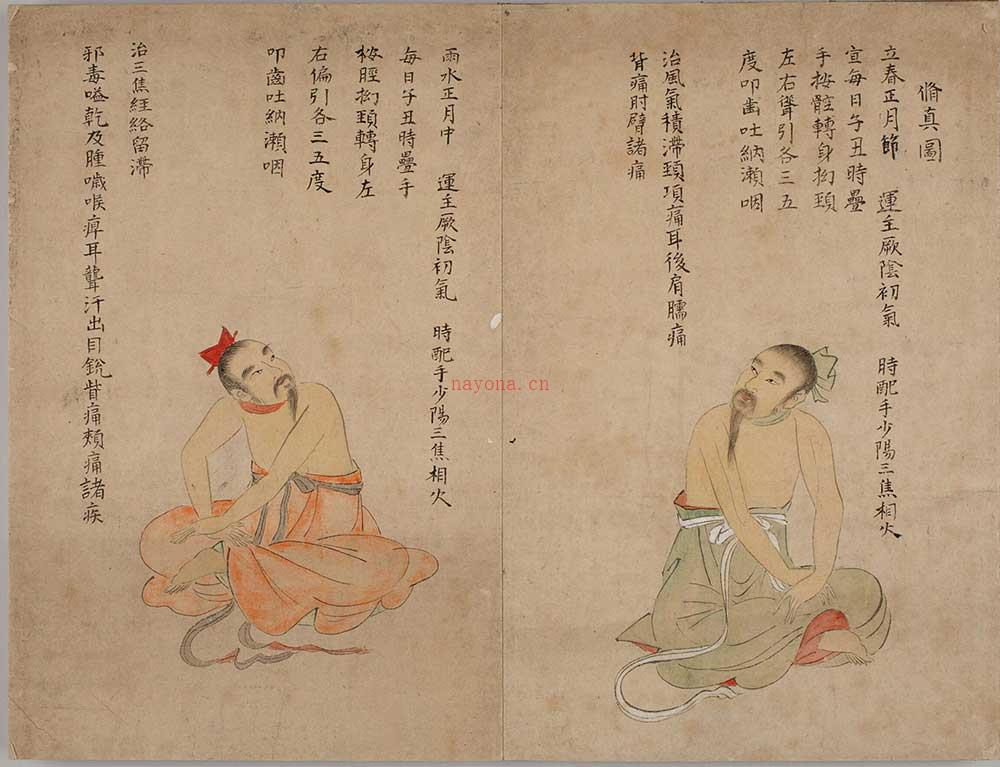 脩真圖
立春正月節　運主厥陰初氣　時配手少陽三焦相火
宜每日子丑時疊
手按髀轉身拗頸
左右聳引各三五
度叩齒吐納漱咽
治風氣積滯頸項痛耳後肩臑痛
背痛肘臂諸痛
雨水正月中　運主厥陰初氣　時配手少陽三焦相火
每日子丑時疊手
按脛拗頸轉身左
右偏引各三五度
叩齒吐納漱咽
治三焦經絡留滯
邪毒嗌乾及腫噦喉痺耳聾汗出目銳眥痛頰痛諸疾
nayona.cn